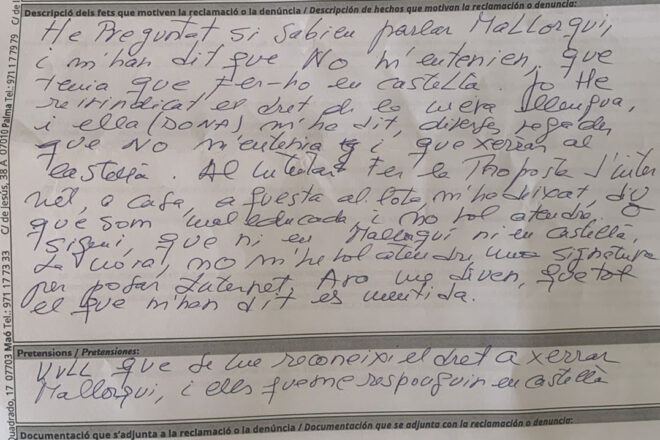 Descripció dels fets que motiven la reclamació o la denúncia / Descripción de hechos que motivan la reclamación o denuncia:
He Preguntat si sabien parlar Mallorquí,
i m'han dit que No m'entenien, que
tenia que fer-ho en castellà. Jo He
reivindicat es dret de la meva llengua,
i ella (DONA) m'ha dit, diverses vegades
que No m'entenia i que xerràs al
castellà. Al intentar Fer la Proposta d'inter
net, a casa, aquesta al·lota m'ha deixat, diu
que som mal educada, i no vol atendre. O
sigui, que ni en Mallorquí ni en Castellà.
La no m'ha vol atendre una signatura
per posar Internet. Ara me diven, que tot
el que m'han dit es mentida.
Pretensions / Pretensiones:
VULL que se me reconeixi el dret a xerrar
Mallorquí, i ells que me responguin en castellà
Documentació que s'adjunta a la reclamació o la denúncia / Documentación que se adjunta con la reclamación o denuncia:
Quadrado, 17 07703 Maó Tel.: 971 17 73 33 C/ de Jesús, 38 A 07010 Palma Tel.: 971 17 79 79 C/ de